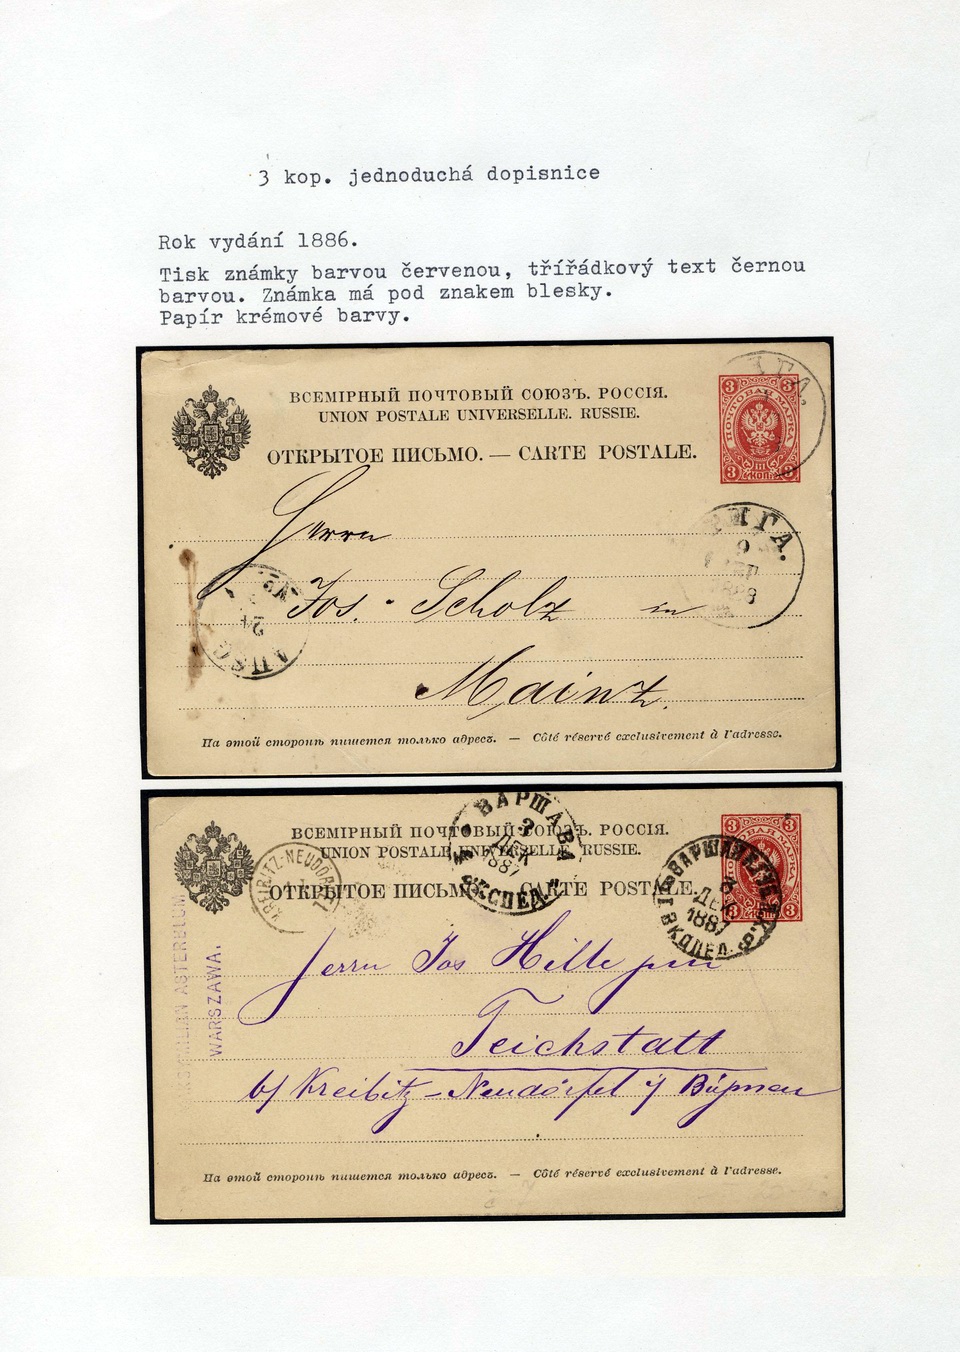 3 kop. jednoduchá dopisnice
Rok vydání 1886.
Tisk známky barvou červenou, třířádkový text černou
barvou. Známka má pod znakem blesky.
Papír krémové barvy.
ВСЕМІРНЫЙ ПОЧТОВЫЙ СОЮЗЪ. РОССІЯ.
UNION POSTALE UNIVERSELLE. RUSSIE.
ОТКРЫТОЕ ПИСЬМО. — CARTE POSTALE.
3 3
ПОЧТОВАЯ МАРКА
III
3 КОП. 3
ИГА.
РИГА.
9
Herrn
Jos. Scholz in
Mainz.
AUSG
24
На этой сторонѣ пишется только адресъ. — Côté réservé exclusivement à l'adresse.
ВСЕМІРНЫЙ ПОЧТОВЫЙ СОЮЗЪ. РОССІЯ.
UNION POSTALE UNIVERSELLE. RUSSIE.
ОТКРЫТОЕ ПИСЬМО. — CARTE POSTALE.
3 3
МАРКА
3
ВАРШАВА
3
ДЕК
1887
"ЭКСПЕД."
ВАРШАВ
3
ДЕК
1887
KREIBITZ-NEUDÖRFL
ASTERBLUM
WARSZAWA.
Herrn Jos Hille jun
Teichstatt
b/ Kreibitz-Neudörfel i/ Böhmen
На этой сторонѣ пишется только адресъ. — Côté réservé exclusivement à l'adresse.